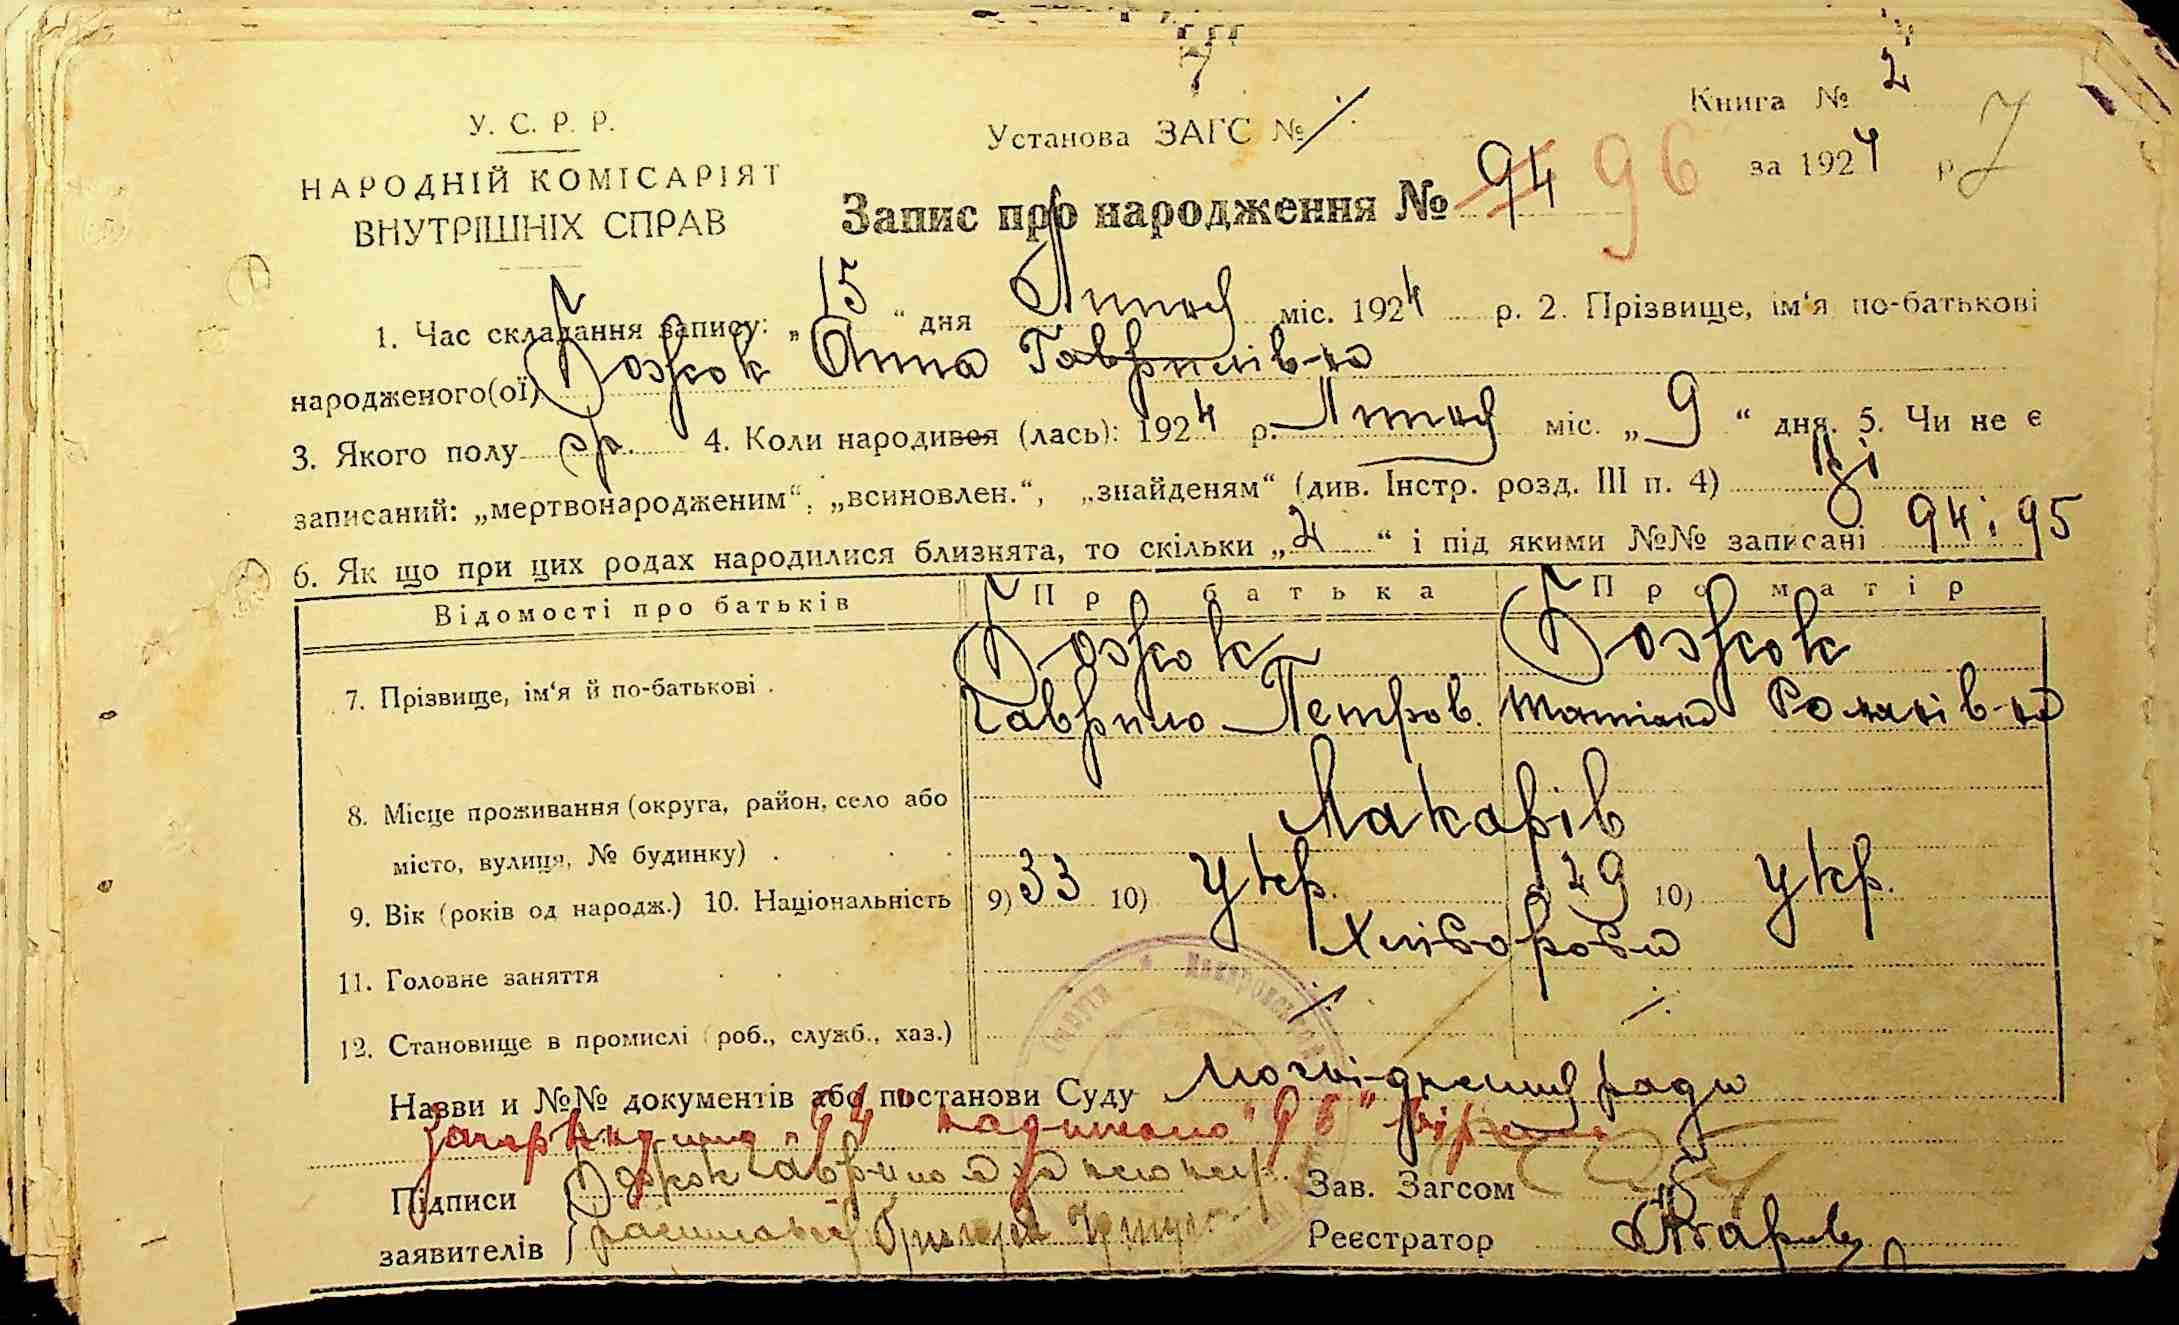 7
Книга № 2
У. С. Р. Р.
Установа ЗАГС № ⁒
за 1924 р. 7
НАРОДНІЙ КОМІСАРІЯТ
ВНУТРІШНІХ СПРАВ
Запис про народження № 94 96
1. Час складання запису: „15“ дня Лютого міс. 1924 р. 2. Прізвище, ім‘я по-батькові
народженого(ої) Божок Анна Гаврилів-на
3. Якого полу 4. Коли народився (лась): 1924 р. Лютого міс. „9“ дня. 5. Чи не є
записаний: „мертвонародженим“, „всиновлен.“, „знайденям“ (див. Інстр. розд. III п. 4) Ні
6. Як що при цих родах народилися близнята, то скільки „2“ і під якими №№ записані 94 і 95
Відомості про батьків Про батька Про матір
7. Прізвище, ім‘я й по-батькові . Божок Божок
Гаврило Петров. Романів-на
8. Місце проживання (округа, район, село або
місто, вулиця, № будинку) . Макарів
9. Вік (років од народж.) 10. Національність 9) 33 10) Укр. 9) 29 10) Укр.
11. Головне заняття Хлібороби
12. Становище в промислі (роб., служб., хаз.) ⁒ ⁒
Назви и №№ документів або постанови Суду ради
„94“ надписано „96“ вірно
Підписи Божок Гаврило а за Зав. Загсом
заявителів Григорій Реєстратор